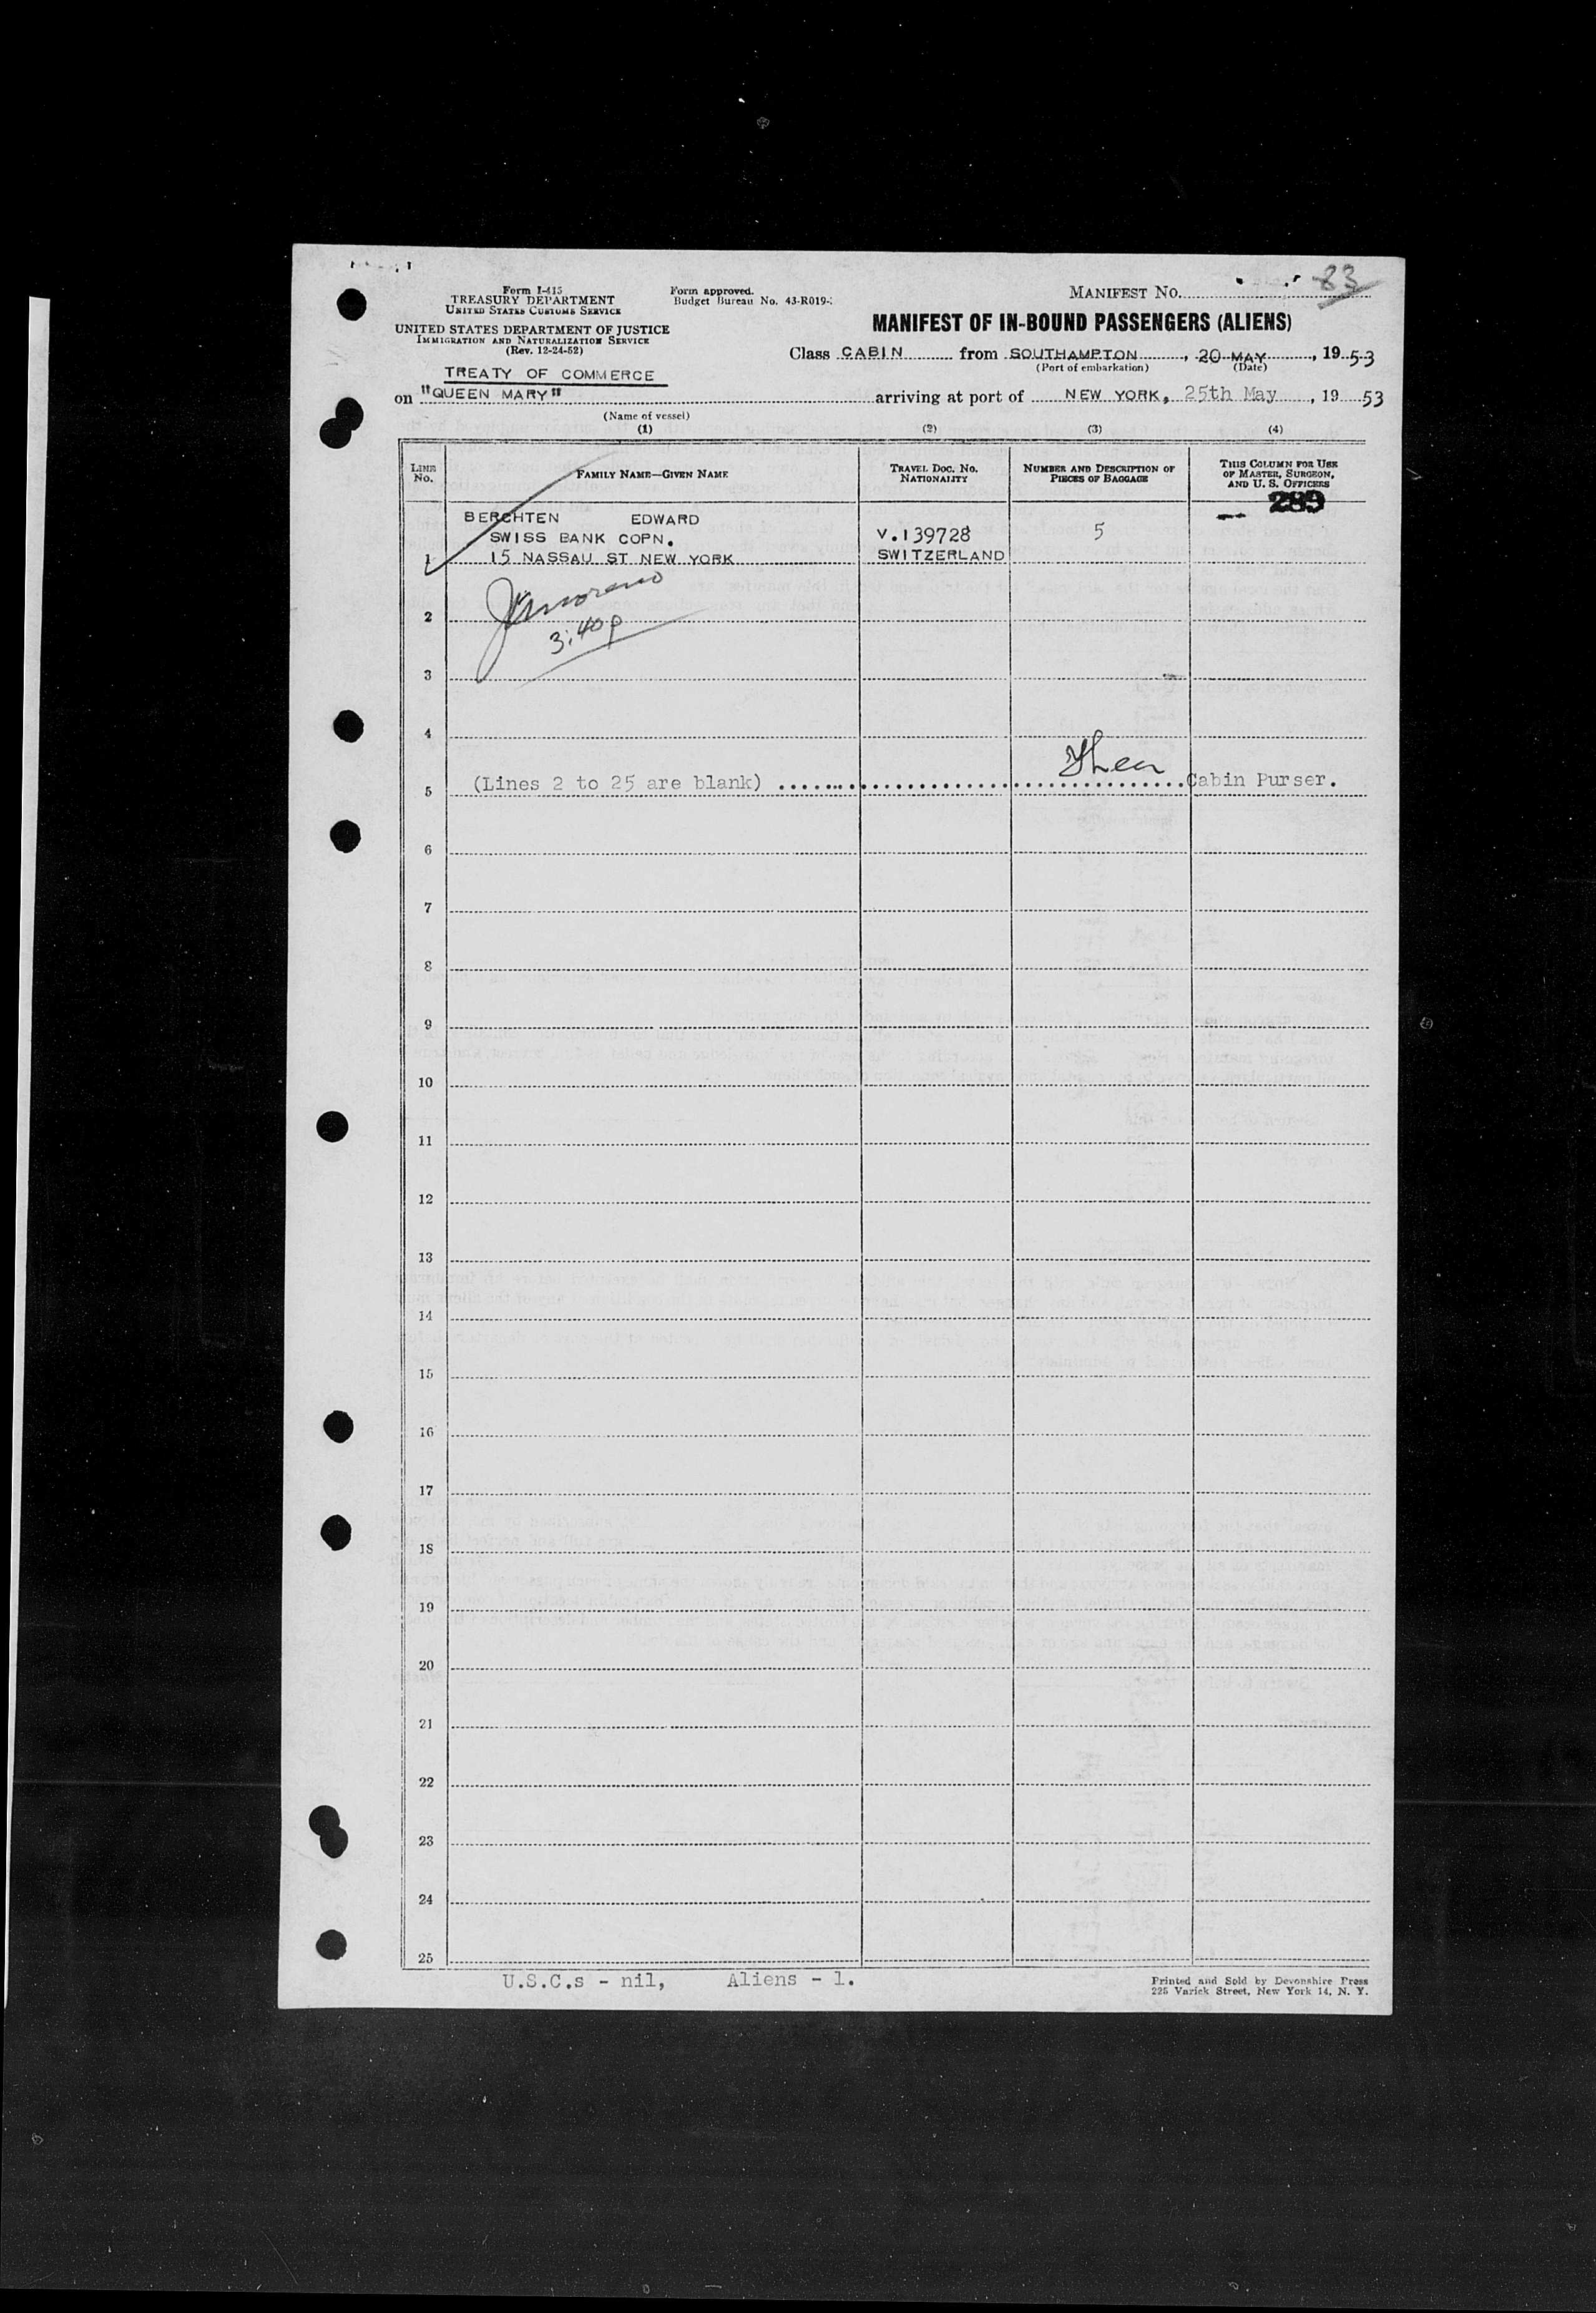 83
Form I-415
TREASURY DEPARTMENT
UNITED STATES CUSTOMS SERVICE
UNITED STATES DEPARTMENT OF JUSTICE
IMMIGRATION AND NATURALIZATION SERVICE
(Rev. 12-24-52)
Form approved.
Budget Bureau No. 43-R019-
MANIFEST NO.
MANIFEST OF IN-BOUND PASSENGERS (ALIENS)
Class CABIN from SOUTHAMPTON, 20 MAY, 1953
(Port of embarkation) (Date)
TREATY OF COMMERCE
on "QUEEN MARY" arriving at port of NEW YORK, 25th May, 1953
(Name of vessel)
(1) (2) (3) (4)
LINE NO.
FAMILY NAME—GIVEN NAME
TRAVEL DOC. NO. NATIONALITY
NUMBER AND DESCRIPTION OF PIECES OF BAGGAGE
THIS COLUMN FOR USE OF MASTER, SURGEON, AND U. S. OFFICERS
289
BERCHTEN EDWARD
SWISS BANK COPN. V.139728 5
1 15 NASSAU ST NEW YORK SWITZERLAND
2
3:40 p
3
4
5 (Lines 2 to 25 are blank) Cabin Purser.
6
7
8
9
10
11
12
13
14
15
16
17
18
19
20
21
22
23
24
25
U.S.C.s - nil, Aliens - 1.
Printed and Sold by Devonshire Press
225 Varick Street, New York 14, N. Y.